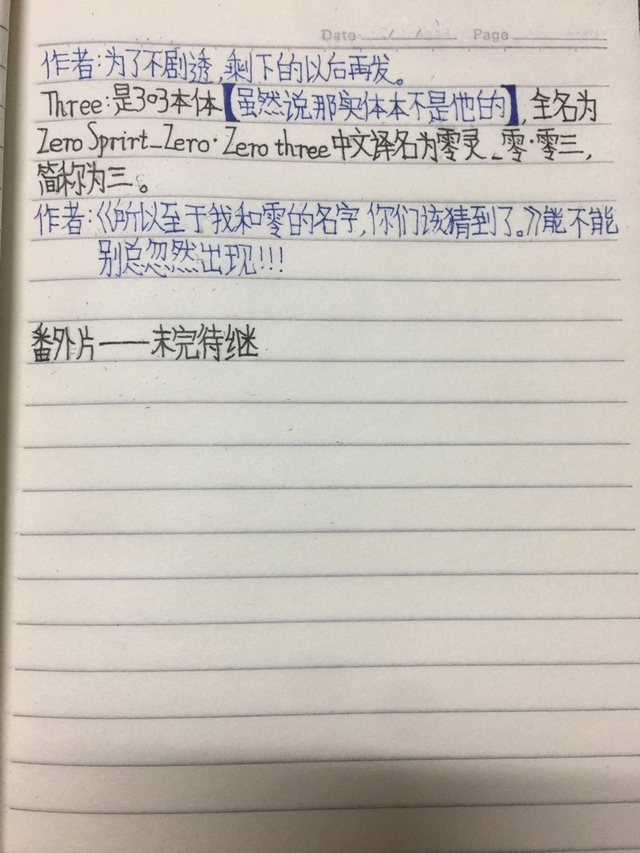 Date / / Page
作者:为了不剧透,剩下的以后再发。
Three:是303本体【虽然说那实体本不是他的】,全名为
Zero Sprirt_Zero·Zero three中文译名为零灵_零·零三,
简称为三。
作者:《所以至于我和零的名字,你们该猜到了。》能不能
别总忽然出现!!!
番外片——末完待继